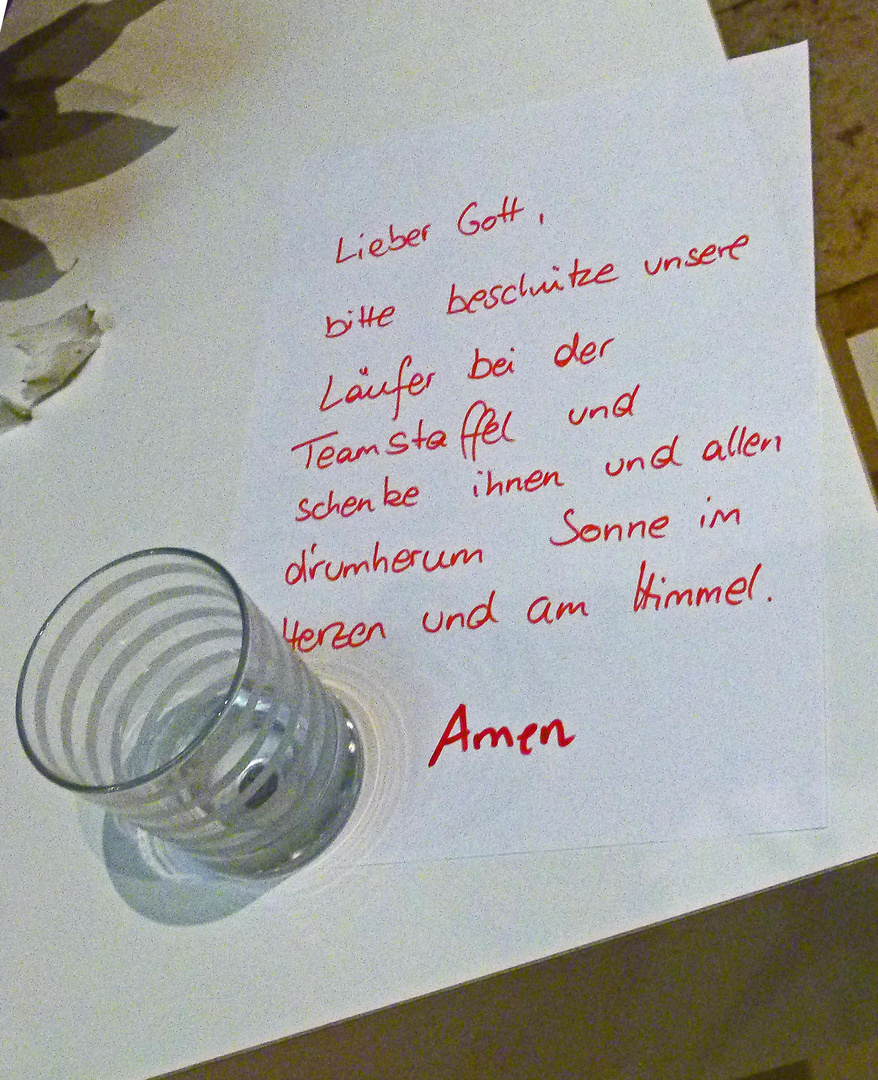 Lieber Gott,
bitte beschütze unsere
Läufer bei der
Teamstaffel und
schenke ihnen und allen
drumherum Sonne im
Herzen und am Himmel.
Amen